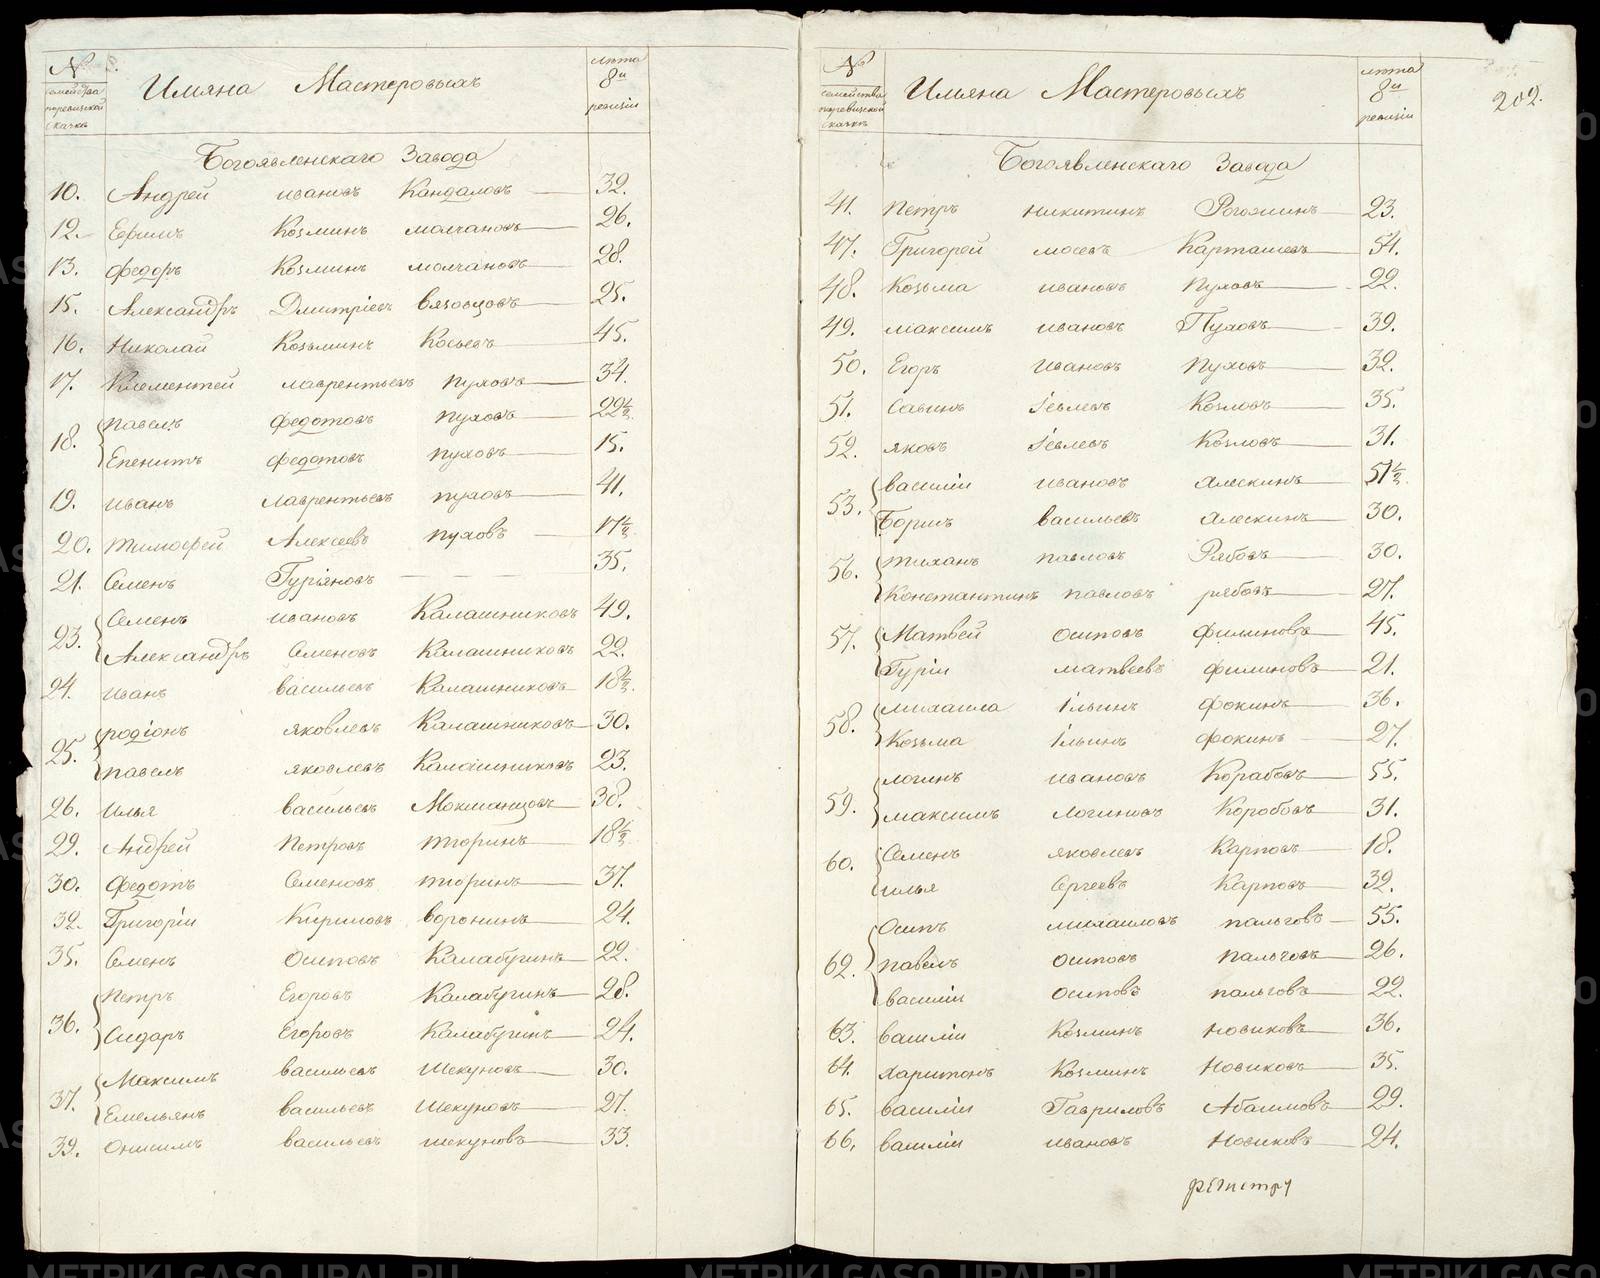 №
семейства
поревизской
сказкѣ
Имяна Мастеровыхъ
лѣта
8й
ревизіи
Богоявленскаго Завода
10. Андрей ивановъ Кандаловъ 32.
12. Ефимъ Козминъ молчановъ 26.
13. федоръ Козминъ молчановъ 28.
15. Александръ Дмитріевъ Вязовцовъ 25.
16. Николай Козьминъ Косьевъ 45.
17. Клементей лаврентьевъ пуховъ 34.
18. павелъ федотовъ пуховъ 22½
Епенитъ федотовъ пуховъ 15.
19. иванъ Лаврентьевъ пуховъ 41.
20. тимофей Алексеевъ пуховъ 17½
21. Семенъ Гуріяновъ 35.
23. Семенъ ивановъ Калашниковъ 49.
Александръ Семеновъ Калашниковъ 22.
24. иванъ васильевъ Калашниковъ 18½
25. родіонъ яковлевъ Калашниковъ 30.
павелъ яковлевъ Калашниковъ 23.
26. илья васильевъ Мокшанцовъ 38.
29. Андрей Петровъ тюринъ 18½
30. Федотъ Семеновъ тюринъ 37.
32. Григоріи Кириловъ воронинъ 24.
35. Семенъ Осиповъ Калабугинъ 22.
36. Петръ Егоровъ Калабугинъ 28.
Сидаръ Егоровъ Калабугинъ 24.
37. Максимъ васильевъ Шекуновъ 30.
Емельянъ васильевъ Шекуновъ 27.
39. Онисимъ васильевъ шекуновъ 33.
202.
№
семейства
поревизской
сказкѣ
Имяна Мастеровыхъ
лѣта
8й
ревизіи
Богоявленскаго Завода
41. Петръ Никитинъ Рогожинъ 23.
47. Григорей мосевъ Карташевъ 54.
48. Козьма ивановъ Пуховъ 22.
49. максимъ ивановъ Пуховъ 39.
50. Егоръ ивановъ Пуховъ 32.
51. Савинъ Іевлевъ Козловъ 35.
52. яковъ Іевлевъ Козловъ 31.
53. василіи ивановъ Алескинъ 51½
Борисъ васильевъ Алескинъ 30.
56. тиханъ павловъ Рябовъ 30.
Константинъ павловъ рябовъ 27.
57. Матвей осиповъ филиновъ 45.
Гуріи матвеевъ филиновъ 21.
58. михаила Ільинъ фокинъ 36.
Козьма Ільинъ фокинъ 27.
59. логинъ ивановъ Корабовъ 55.
максимъ Логиновъ Коробовъ 31.
60. Семенъ яковлевъ Карповъ 18.
илья Сергеевъ Карповъ 32.
62. Осипъ михаиловъ пальговъ 55.
павелъ осиповъ пальговъ 26.
василіи осиповъ пальговъ 22.
63. василіи Козминъ новиковъ 36.
64. харитонъ Козминъ Новиковъ 35.
65. василіи Гавриловъ Абаимовъ 29.
66. василіи ивановъ Новиковъ 24.
регистру
METRIKI.GASO-URAL.RU METRIKI.GASO-URAL.RU METRIKI